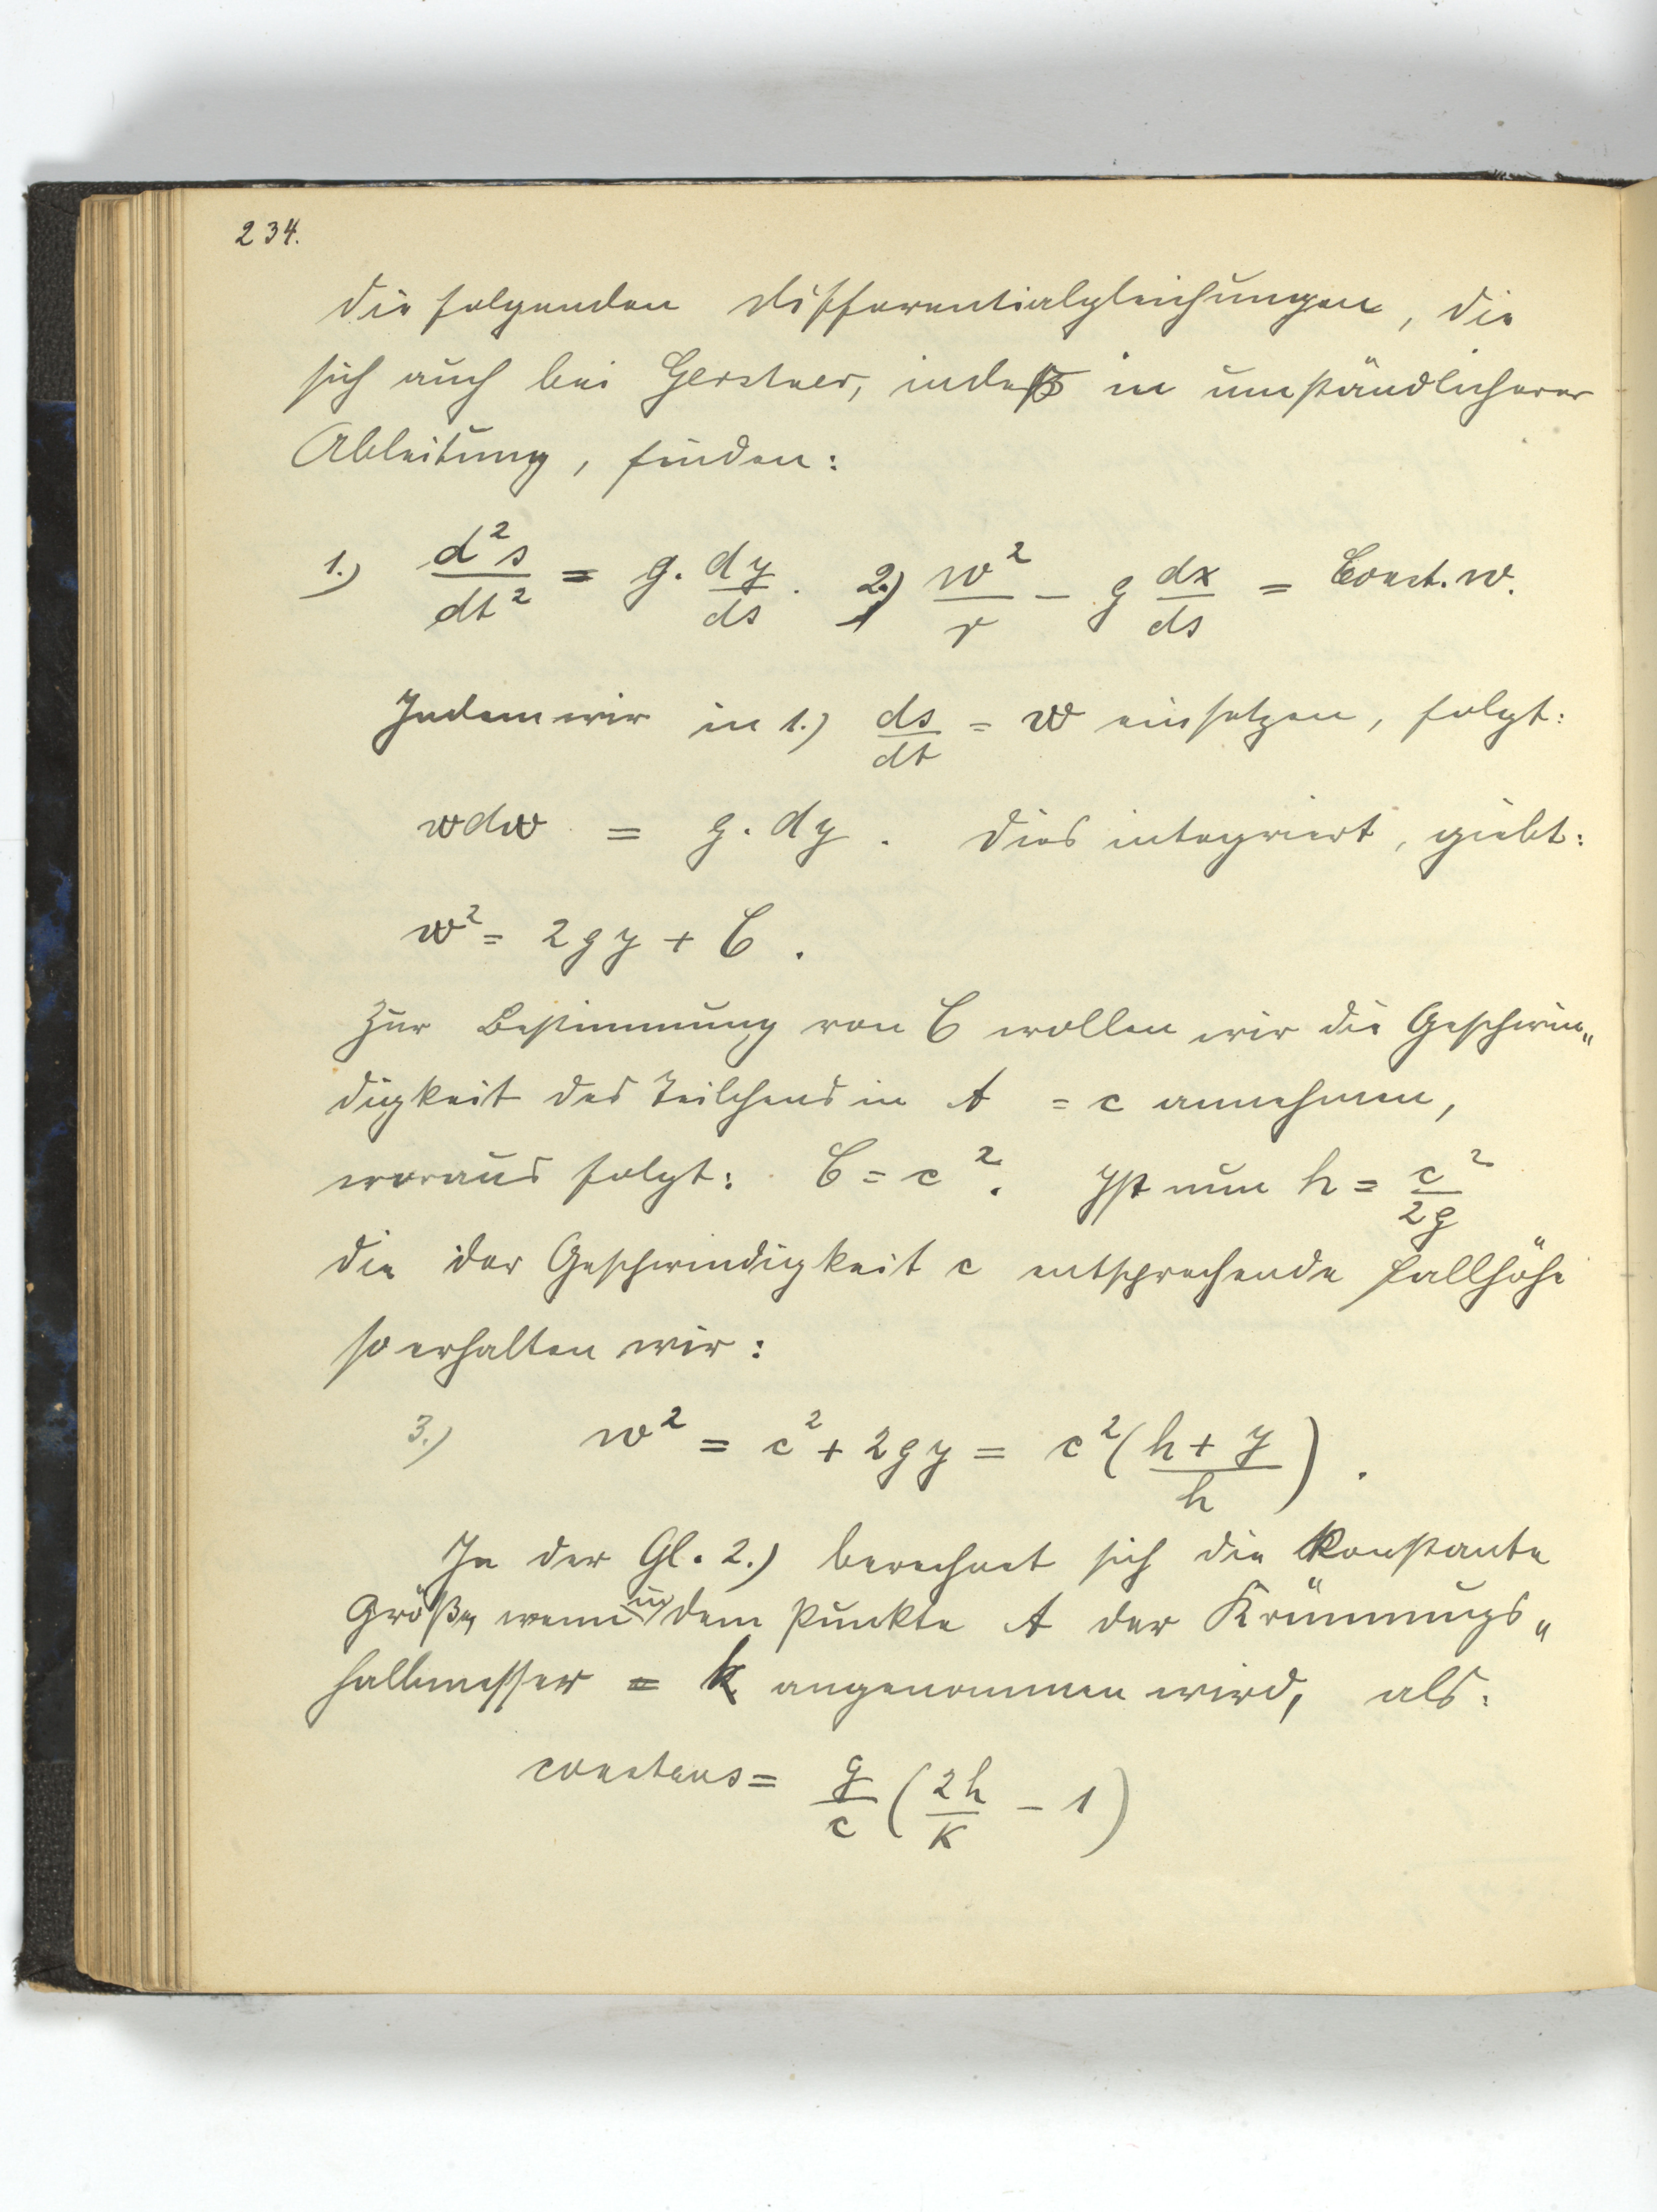 234.
die folgenden Differentialgleichungen, die
sich auch bei Gerstner, indeß in umständlicherer
Ableitung, finden:
1.) d²s/dt² = g. dy/ds. 2.) w²/r - g dx/ds = Const. w.
Indem wir in 1.) ds/dt = w einsetzen, folgt:
wdw = g. dy. Dies integriert, giebt:
w² = 2gy + C.
Zur Bestimmung von C wollen wir die Geschwin„
digkeit des Teilchens in A = c annehmen,
woraus folgt: C = c². Ist nun h = c²/2g
die der Geschwindigkeit c entsprechende Fallhöhe
so erhalten wir:
3.) w² = c² + 2gy = c² (h + y/h).
In der Gl. 2.) berechnet sich die Konstante
Größe, wenn in dem Punkte A der Krümmungs„
halbmesser = k angenommen wird, als:
constans = g/c (2h/K - 1)